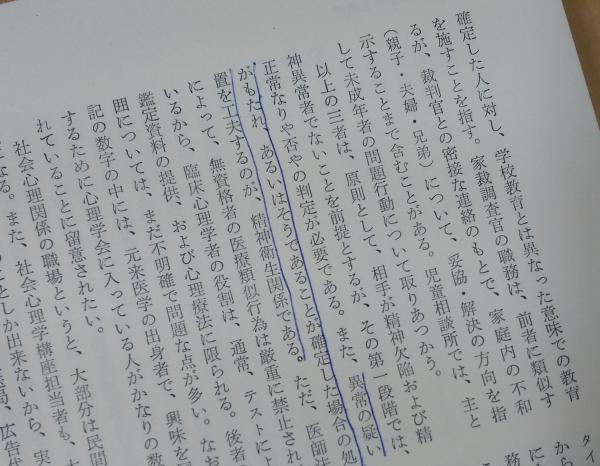 確定した人に対し、学校教育とは異なった意味での教育
を施すことを指す。家裁調査官の職務は、前者に類似す
るが、裁判官との密接な連絡のもとで、家庭内の不和
(親子・夫婦・兄弟)について、妥協・解決の方向を指
示することまで含むことがある。児童相談所では、主と
して未成年者の問題行動について取りあつかう。
以上の三者は、原則として、相手が精神欠陥および精
神異常者でないことを前提とするが、その第一段階では、
正常なりや否やの判定が必要である。また、異常の疑い
がもたれ、あるいはそうであることが確定した場合の処
置を工夫するのが、精神衛生関係である。ただ、医師法
によって、無資格者の医療類似行為は厳重に禁止されて
いるから、臨床心理学者の役割は、通常、テストによ
鑑定資料の提供、および心理療法に限られる。後者の
囲については、まだ不明確で問題な点が多い。なお
記の数字の中には、元来医学の出身者で、興味を同
するために心理学会に入っている人がかなりの数
れていることに留意されたい。
社会心理関係の職場というと、大部分は民間
になる。また、社会心理学講座担当者も、大
ことしか出来ないから、実
広告代
タイ
から
に
務